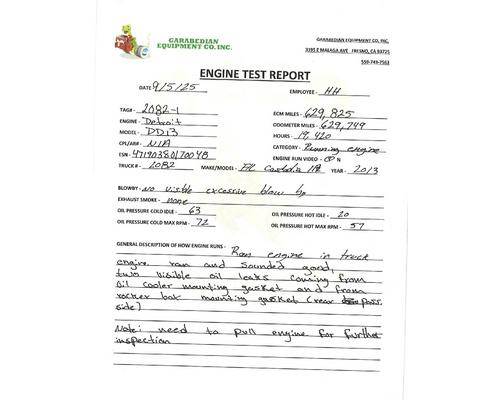 GARABEDIAN
EQUIPMENT CO. INC.
GARABEDIAN EQUIPMENT CO, INC.
3195 E MALAGA AVE FRESNO, CA 93725
559-743-7563
ENGINE TEST REPORT
DATE 9/5/25 EMPLOYEE - HH
TAG# - 2082-1 ECM MILES - 629,825
ENGINE - Detroit ODOMETER MILES - 629,749
MODEL - DD13 HOURS - 19,420
CPL/AR# - N/A CATEGORY - Running engine
ESN - 471903S0170048 ENGINE RUN VIDEO - Y N
TRUCK # - 2082 MAKE/MODEL - YEAR - 2013
BLOWBY - no visible excessive blow by
EXHAUST SMOKE - none
OIL PRESSURE COLD IDLE - 63 OIL PRESSURE HOT IDLE - 20
OIL PRESSURE COLD MAX RPM - 72 OIL PRESSURE HOT MAX RPM - 57
GENERAL DESCRIPTION OF HOW ENGINE RUNS - Ran engine in truck
engine ran and sounded good,
two visible oil leaks coming from
oil cooler mounting gasket and from
rocker box mounting gasket (rear pass.
side)
Note: need to pull engine for further
inspection